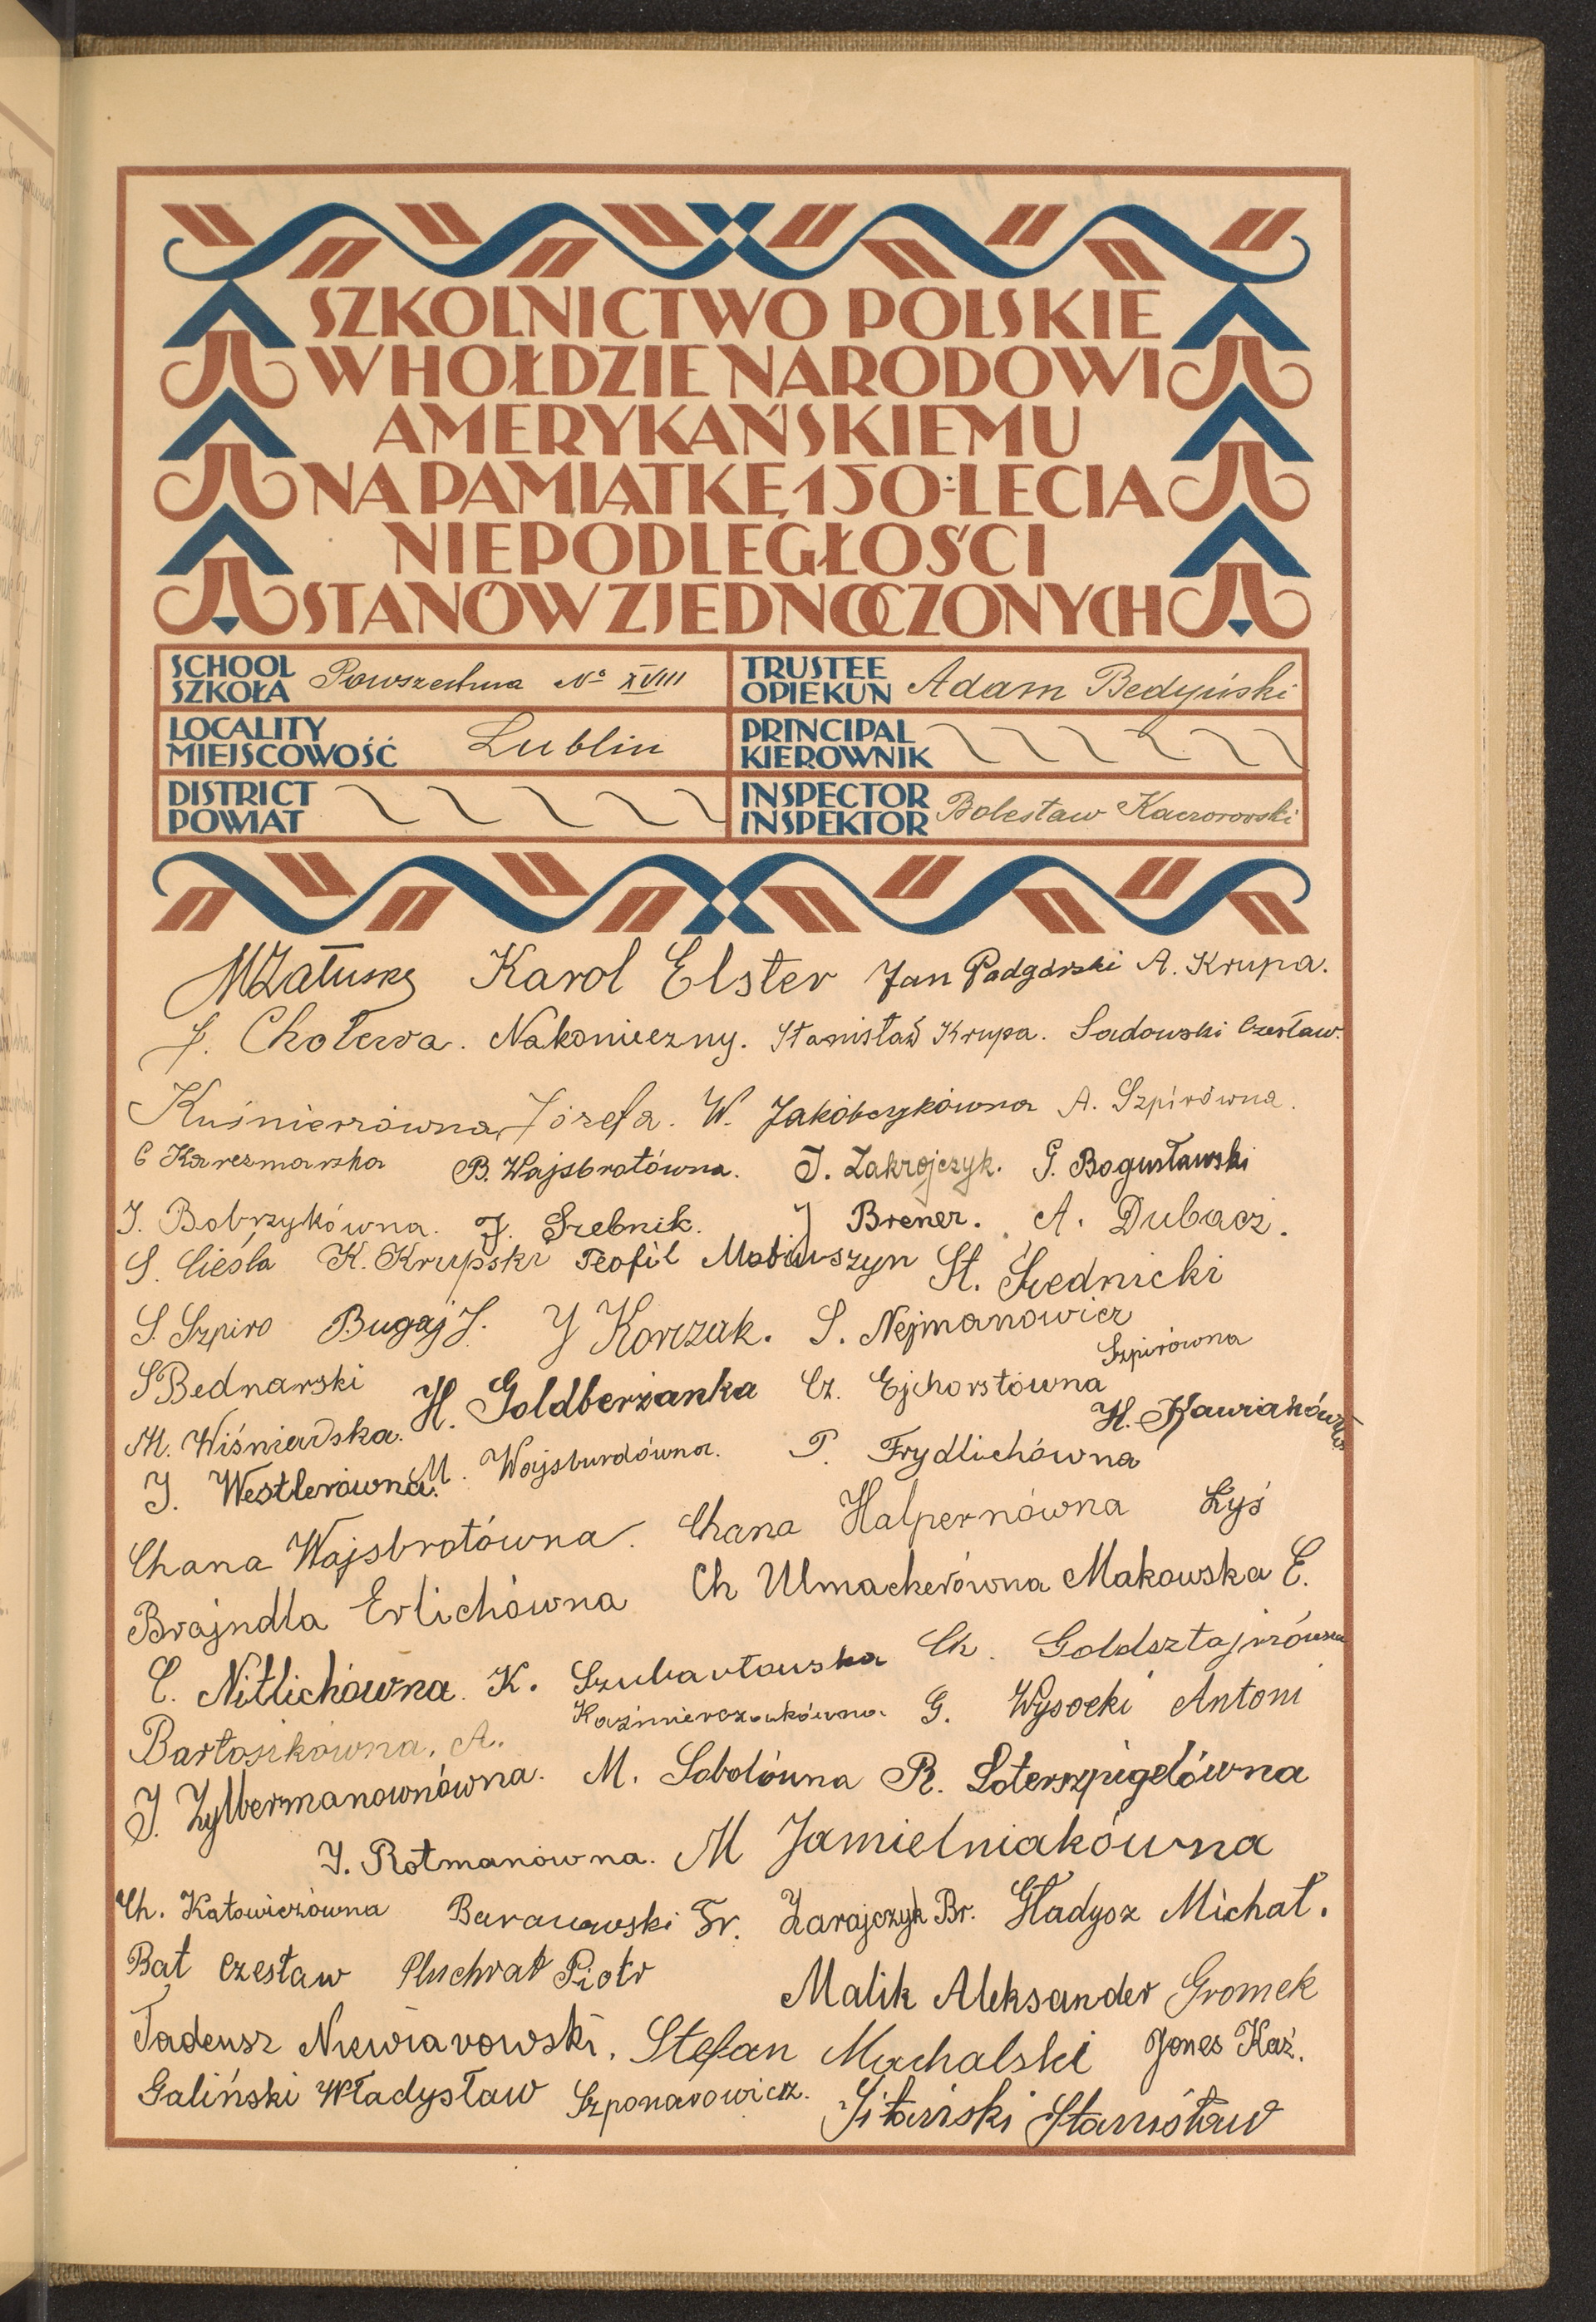 SZKOLNICTWO POLSKIE
W HOŁDZIE NARODOWI
AMERYKAŃSKIEMU
NA PAMIĄTKĘ 150-LECIA
NIEPODLEGŁOŚCI
STANÓW ZJEDNOCZONYCH
SCHOOL
SZKOŁA Powszechna No XVIII
TRUSTEE
OPIEKUN Adam Bedyński
LOCALITY
MIEJSCOWOŚĆ Lublin
PRINCIPAL
KIEROWNIK
DISTRICT
POWIAT
INSPECTOR
INSPEKTOR Bolesław Kaczorowski
M Załuska Karol Elster Jan Podgórski A. Krupa.
J. Cholewa. Nakonieczny. Stanisław Krupa. Sadowski Czesław.
Kuśnierzówna Józefa. W. Jakóbczykówna A. Szpirówna.
C Karczmarska B. Wajsbrotówna. J. Zakrojczyk. G. Bogusławski
I. Bobrzykówna. J. Srebnik. J Brener. A. Dubacz.
S. Cieśla K. Krupski Teofil Matiuszyn St. Średnicki
S. Szpiro Bugaj J. J Korczak. S. Nejmanowicz
Szpirówna
S Bednarski H. Goldberżanka Cz. Ejchorstówna
M. Wiśniewska. H. Kawiakówna
J. Westlerówna. M. Wajsburdówna. P. Frydlichówna
Chana Wajsbrotówna. Chana Halpernówna Łyś
Brajndla Erlichówna Ch Ulmacherówna Makowska E.
C. Nitlichówna. K. Szubartowska Ch. Goldsztajnówna
Bartosikówna. A. Kaźmierczakówna. G. Wysocki Antoni
J. Zylbermanownówna. M. Sobolówna R. Loterszpigelówna
J. Rotmanówna. M Jamielniakówna
Ch. Katowiczówna Baranowski Fr. Zarajczyk Br. Gładysz Michał.
Bąt Czesław Pluchrat Piotr Malik Aleksander Gromek
Tadeusz Niewiarowski. Stefan Machalski Jones Kaź.
Galiński Władysław Szponarowicz. Sitarski Stanisław